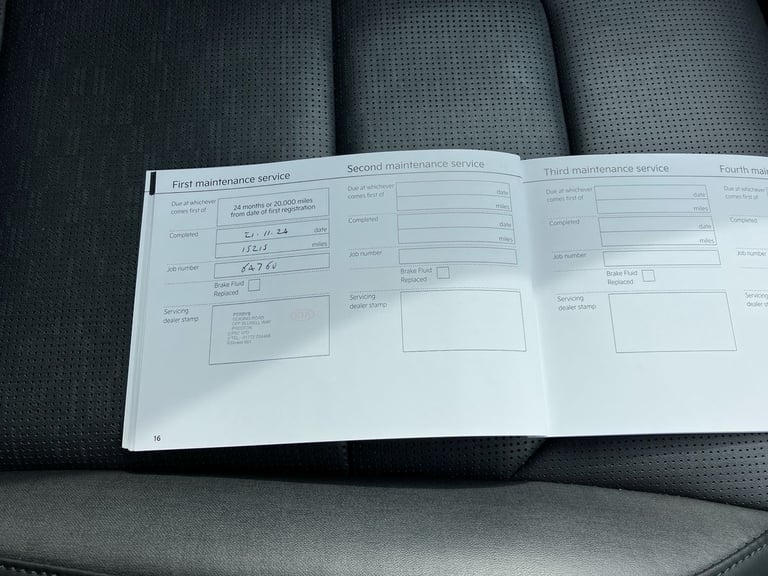 First maintenance service
Due at whichever
comes first of
24 months or 20,000 miles
from date of first registration
Completed
21.11.24 date
15215 miles
Job number
64760
Brake Fluid
Replaced
Servicing
dealer stamp
PERRYS
PRESTON
KIA
16
Second maintenance service
Due at whichever
comes first of
date
miles
Completed
date
miles
Job number
Brake Fluid
Replaced
Servicing
dealer stamp
Third maintenance service
Due at whichever
comes first of
date
miles
Completed
date
miles
Job number
Brake Fluid
Replaced
Servicing
dealer stamp
Fourth mai
Due at whichever
comes first of
Completed
Job number
Servicing
dealer s